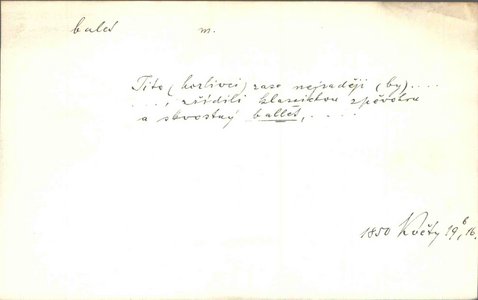 balet m.
Tito (horlivci) zase nejraději (by) ....
...., zřídili klassickou zpěvohru
a skvostný ballet, . . . .
1850 Květy 19, 6/16.